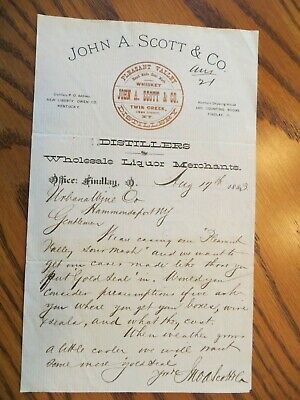 JOHN A. SCOTT & CO.
Ans
21
PLEASANT VALLEY
WHISKEY
JOHN A. SCOTT & CO.
TWIN CREEK,
KY.
DISTILLERY
Distillers P.O. Address
NEW LIBERTY OWEN CO.
KENTUCKY
AND COUNTING ROOMS
FINDLAY, O.
DISTILLERS
Wholesale Liquor Merchants.
Office: Findlay, O. Aug 17th 1883
Urbana Wine Co
Hammondsport NY
Gentlemen
casing our "Pleasant
Valley Sour Mash" and we want to
get our cases made like those you
put "Gold Seal" in. Would you
consider presumptious if we ask
you where you get your boxes, wire
& seals, and what they cost.
When weather grows
a little cooler we will want
some more "Gold Seal"
Jno A Scott & Co